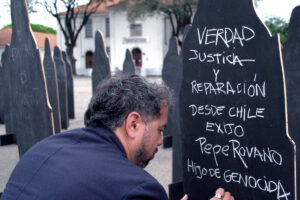 VERDAD
JUSTICIA
Y
REPARACIÓN
DESDE CHILE
EXIJO
PEPE ROVANO
HIJO DE GENOCIDA